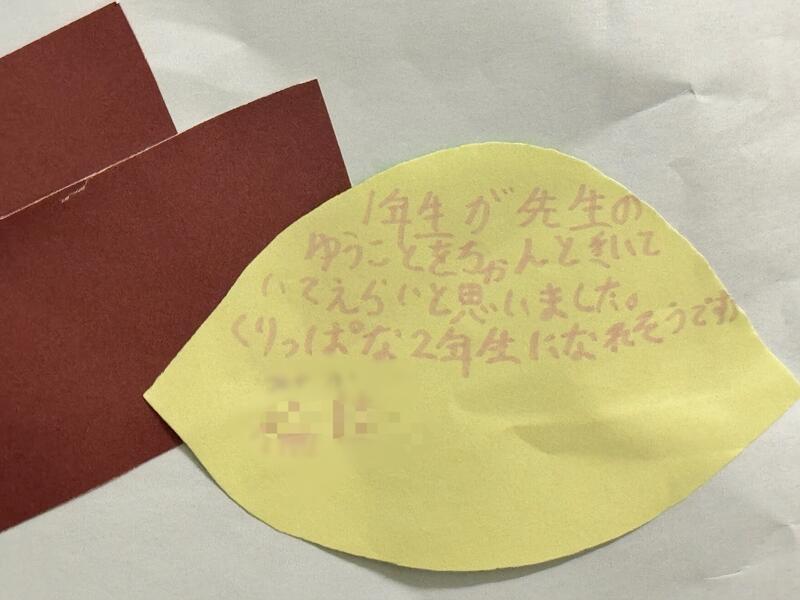 1年生が先生の
ゆうことをちゃんときいて
いてえらいと思いました。
くりっぱな2年生になれそうです